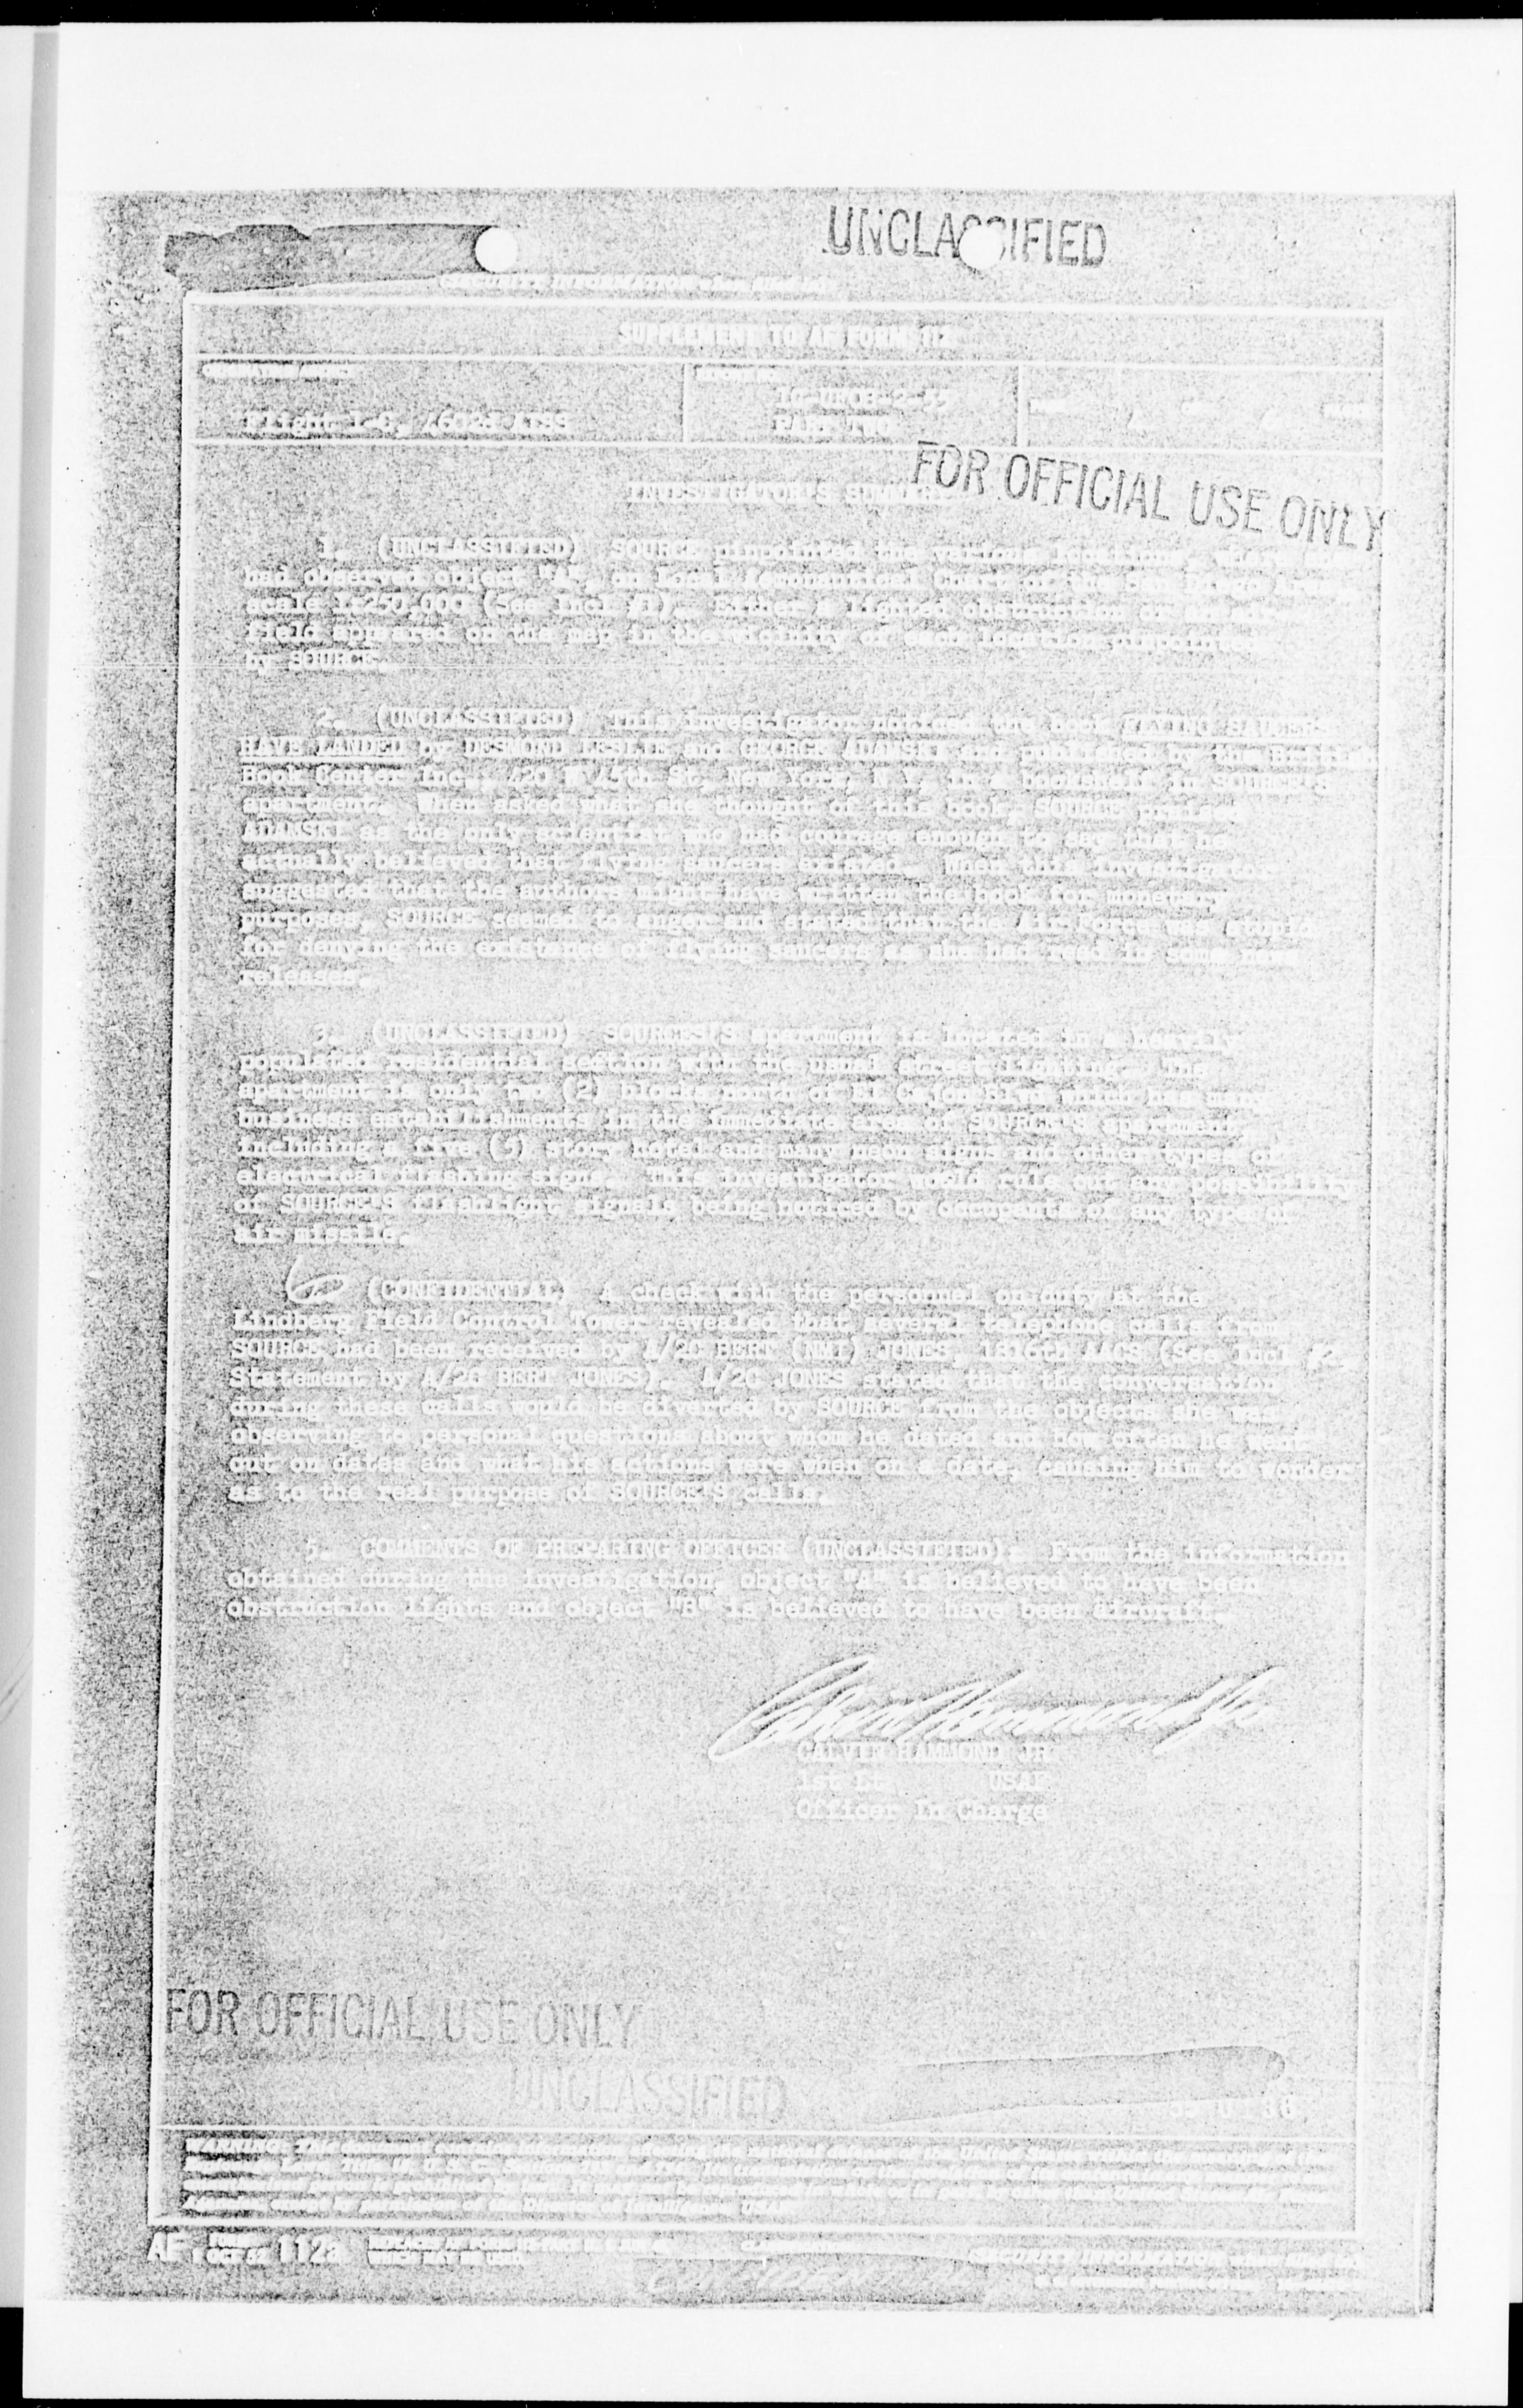 UNCLASSIFIED
SUPPLEMENT TO AF FORM 112
Flight 1-C, 4602d AISS
PART TWO
FOR OFFICIAL USE ONLY
INVESTIGATOR'S SUMMARY
1. (UNCLASSIFIED) SOURCE pinpointed the various
had observed object "A", on Local Aeronautical Chart
scale 1:250,000 (See Incl #1). Either a lighted obstruction or
field appeared on the map in the vicinity of each location pinpointed
by SOURCE.
2. (UNCLASSIFIED) This investigator noticed the book FLYING SAUCERS
HAVE LANDED by DESMOND LESLIE and GEORGE ADAMSKI and published by the British
Book Center Inc., 420 W 45th St, New York, N Y, in a bookshelf in SOURCE'S
apartment. When asked what she thought of this book, SOURCE praised
ADAMSKI as the only scientist who had courage enough to say that he
actually believed that flying saucers existed. When this investigator
suggested that the authors might have written the book for monetary
purposes, SOURCE seemed to anger and stated that the Air Force was stupid
for denying the existence of flying saucers as she had read in some news
releases.
3. (UNCLASSIFIED) SOURCE'S apartment is located in a heavily
populated residential section with the usual street lighting. The
apartment is only two (2) blocks north of El Cajon Blvd which has many
business establishments in the immediate area of SOURCE'S apartment,
including a five (5) story hotel and many neon signs and other types of
electrical flashing signs. This investigator would rule out any possibility
of SOURCE'S flashlight signals being noticed by occupants of any type of
air missile.
(CONFIDENTIAL) A check with the personnel on duty at the
Lindberg Field Control Tower revealed that several telephone calls from
SOURCE had been received by A/2C BERT (NMI) JONES, 1816th AACS (See Incl #2,
Statement by A/2C BERT JONES). A/2C JONES stated that the conversation
during these calls would be diverted by SOURCE from the objects she was
observing to personal questions about whom he dated and how often he went
out on dates and what his actions were when on a date, causing him to wonder
as to the real purpose of SOURCE'S calls.
5. COMMENTS OF PREPARING OFFICER (UNCLASSIFIED): From the information
obtained during this investigation, object "A" is believed to have been
obstruction lights and object "B" is believed to have been aircraft.
CALVIN HAMMOND JR
1st Lt USAF
Officer In Charge
FOR OFFICIAL USE ONLY
UNCLASSIFIED
AF 112a